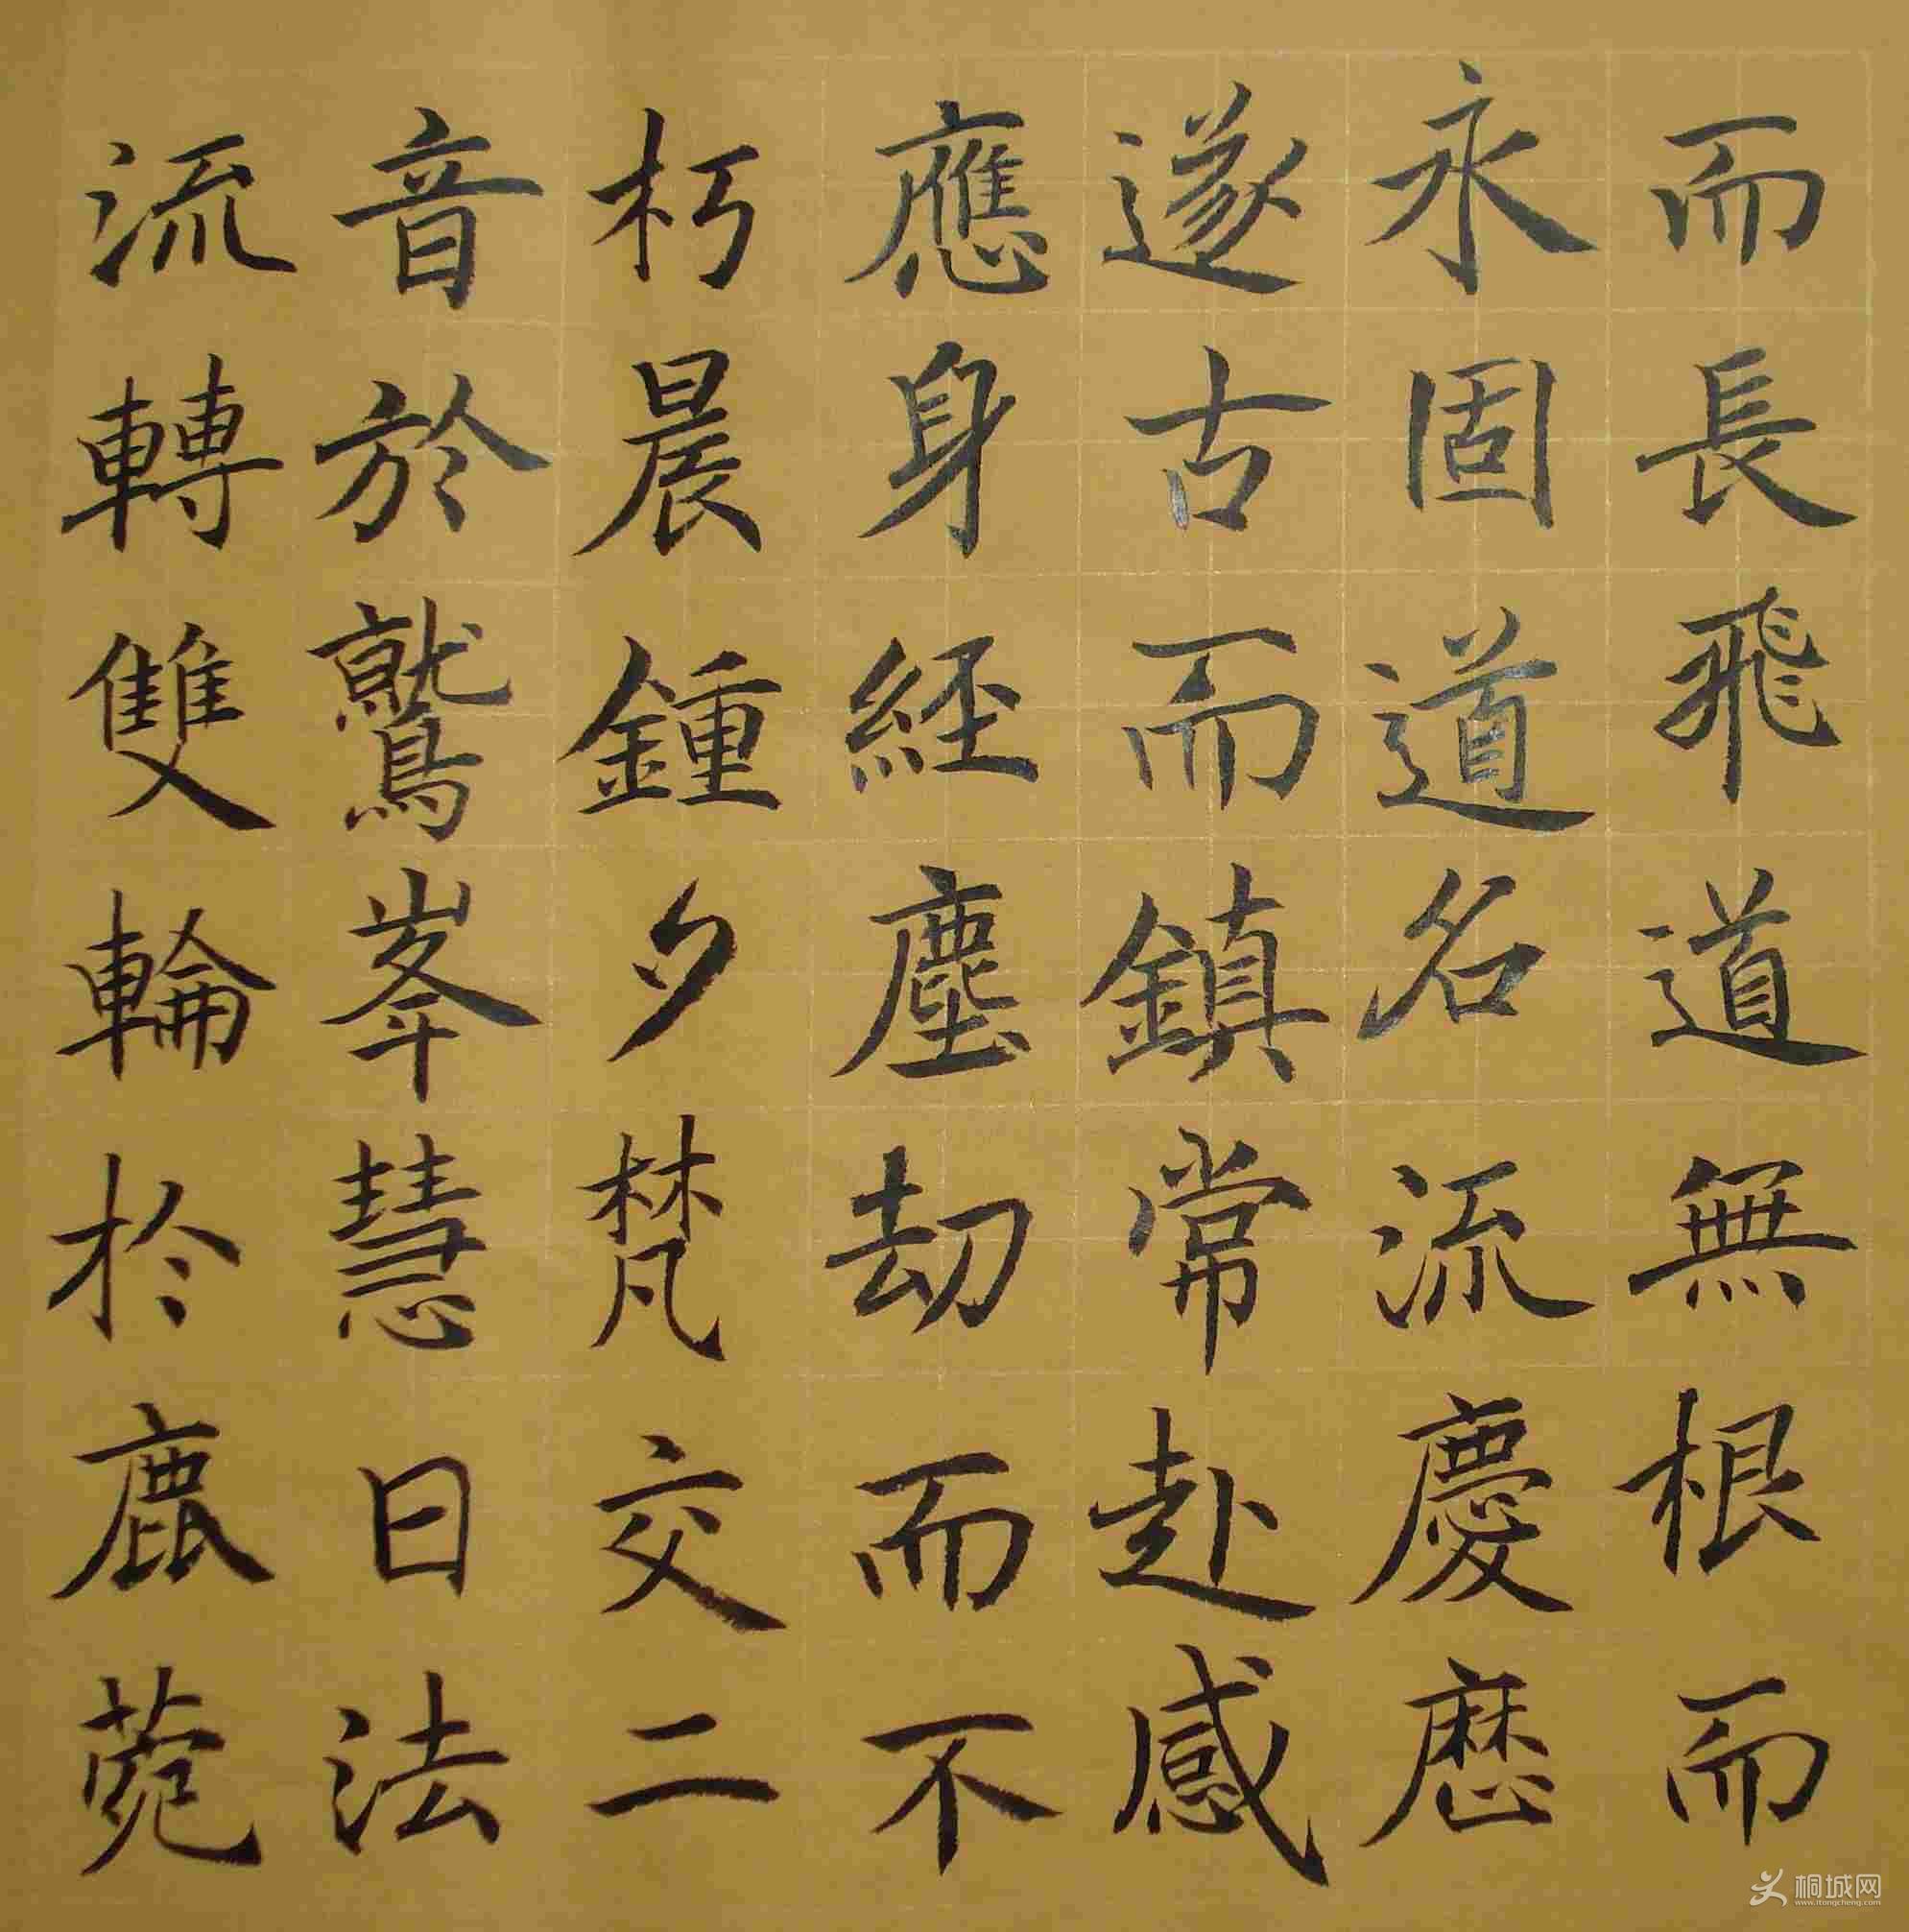 而長飛道無根而
永固道名流慶歷
遂古而鎮常赴感
應身經塵劫而不
朽晨鍾夕梵交二
音於鷲峯慧日法
流轉雙輪於鹿菀
桐城网
www.itongcheng.com